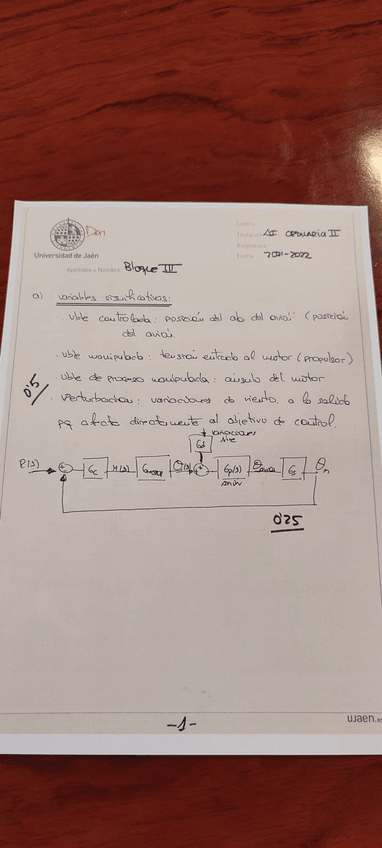 Universidad de Jaén
Centro
Titulación AI ORDINARIA II
Asignatura
Fecha 2021-2022
Apellidos y Nombre Bloque IV
a) variables significativas:
· vble controlada: posición del ala del avión (posición
del avión.
· vble manipulada: tensión entrada al motor (propulsor)
· vble de proceso manipulada: ángulo del motor
0'5
· Perturbación: variaciones de viento, a la salida
pq afecta directamente al objetivo de control.
Gd
R(s)
Gc
Gp(s)
Gs
θm
0'25
-1-
ujaen.es